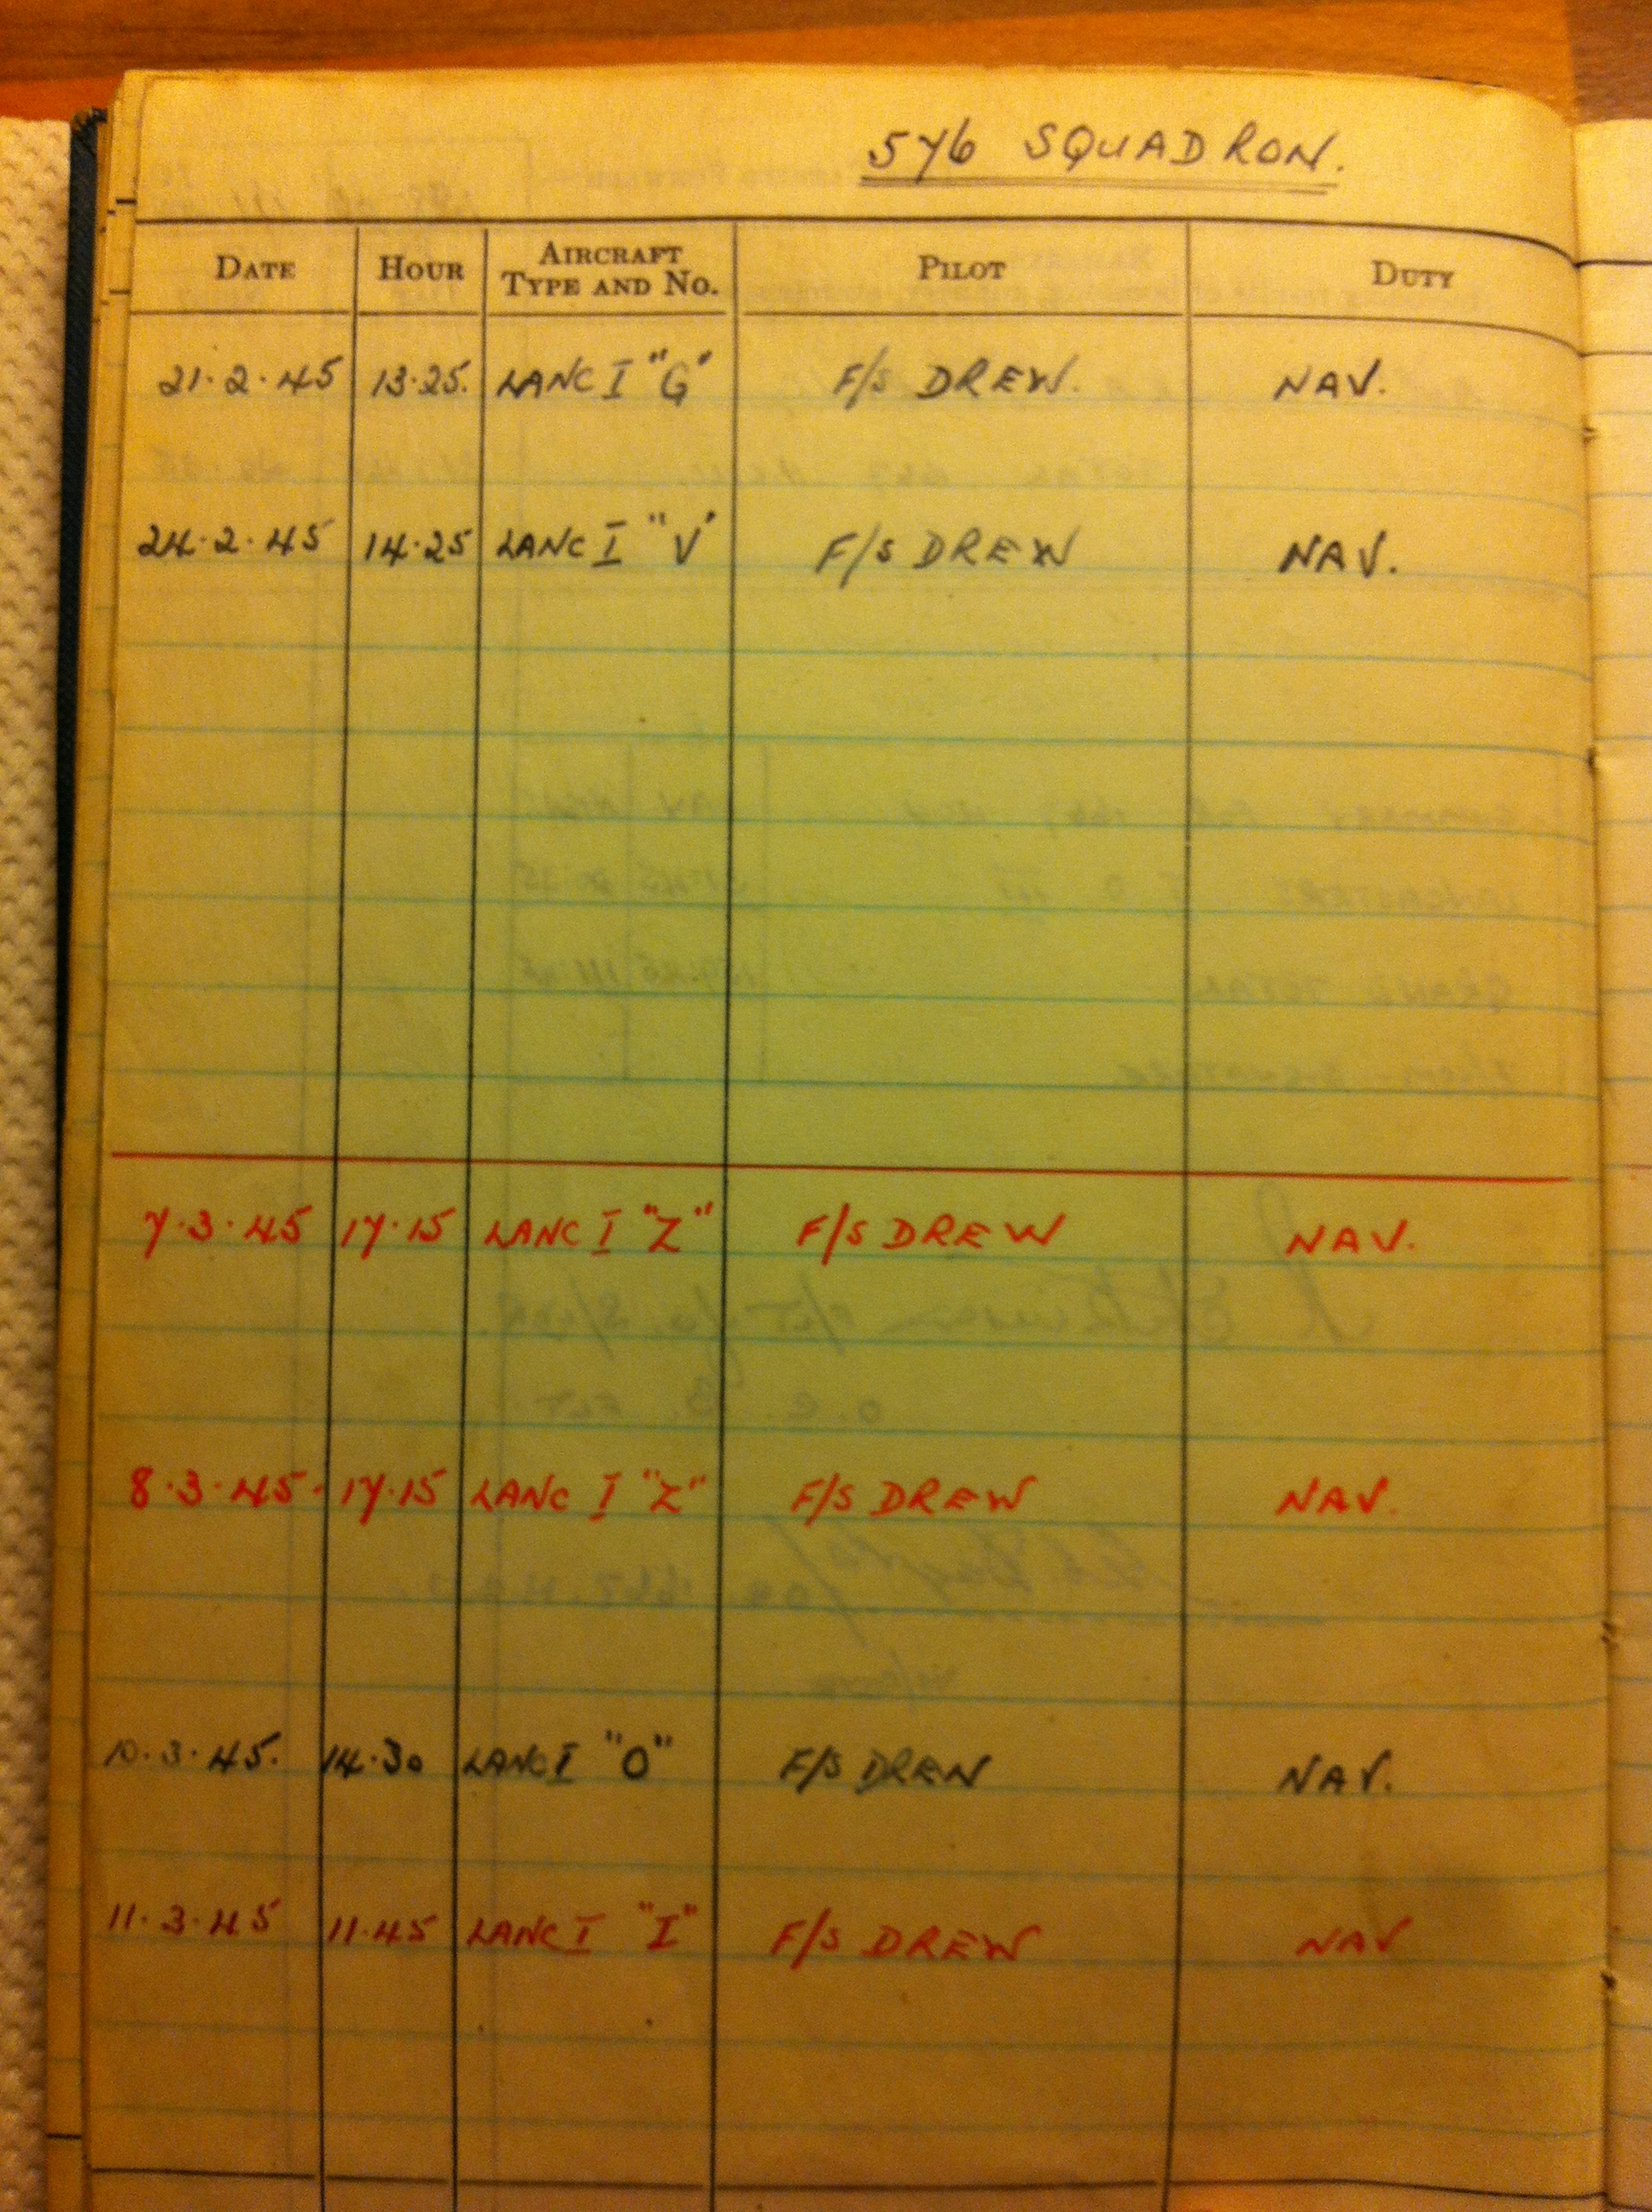 576 SQUADRON.
DATE HOUR AIRCRAFT TYPE AND NO. PILOT DUTY
21·2·45 13·25. LANC I "G" F/S DREW. NAV.
24·2·45 14·25 LANC I "V" F/S DREW NAV.
7·3·45 17·15 LANC I "Z" F/S DREW NAV.
8·3·45· 17·15 LANC I "Z" F/S DREW NAV.
10·3·45. 14·30 LANC I "O" F/S DREW NAV.
11·3·45 11·45 LANC I "I" F/S DREW NAV